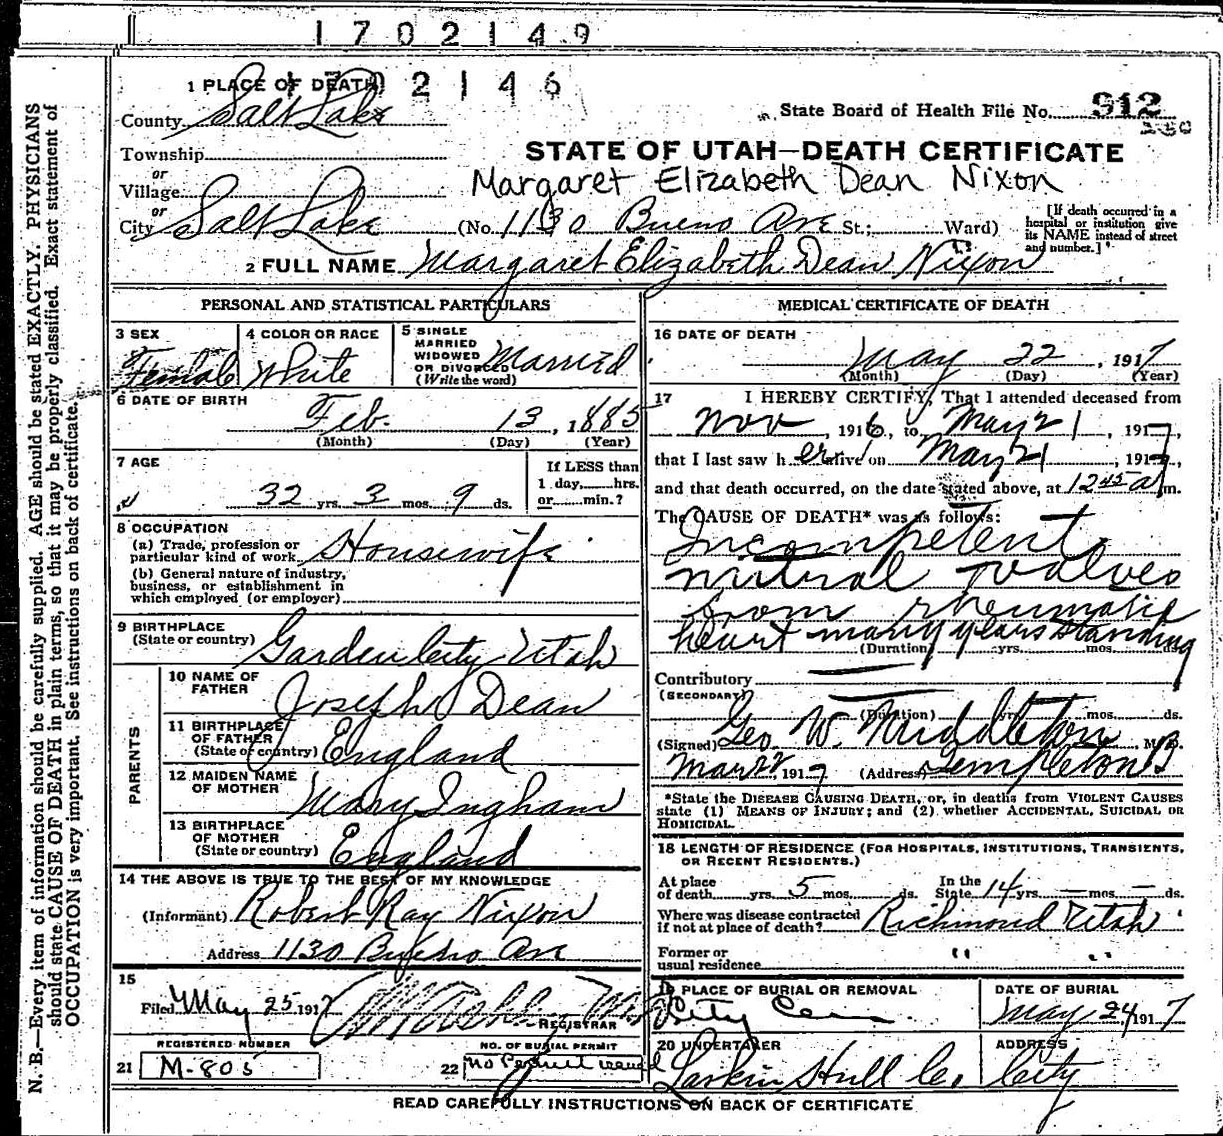 1702149
1 PLACE OF DEATH
1702146
County Salt Lake
State Board of Health File No. 912
Township
or
Village
or
City Salt Lake
STATE OF UTAH—DEATH CERTIFICATE
Margaret Elizabeth Dean Nixon
(No. 1130 Bueno Ave St.; Ward)
[If death occurred in a hospital or institution give its NAME instead of street and number.]
2 FULL NAME Margaret Elizabeth Dean Nixon
PERSONAL AND STATISTICAL PARTICULARS
3 SEX
Female
4 COLOR OR RACE
White
5 SINGLE
MARRIED
WIDOWED
OR DIVORCED
(Write the word)
Married
6 DATE OF BIRTH
Feb. 13, 1885
(Month) (Day) (Year)
7 AGE
32 yrs. 3 mos. 9 ds.
If LESS than
1 day, hrs.
or min.?
8 OCCUPATION
(a) Trade, profession or
particular kind of work Housewife
(b) General nature of industry,
business, or establishment in
which employed (or employer)
9 BIRTHPLACE
(State or country) Garden City Utah
PARENTS
10 NAME OF
FATHER Joseph Dean
11 BIRTHPLACE
OF FATHER
(State or country) England
12 MAIDEN NAME
OF MOTHER Mary Ingham
13 BIRTHPLACE
OF MOTHER
(State or country) England
14 THE ABOVE IS TRUE TO THE BEST OF MY KNOWLEDGE
(Informant) Robert Ray Nixon
Address 1130 Bueno Ave
15
Filed May 25 1917
REGISTRAR
REGISTERED NUMBER
21 M-805
NO. OF BURIAL PERMIT
22 No Permit issued
MEDICAL CERTIFICATE OF DEATH
16 DATE OF DEATH
May 22, 1917
(Month) (Day) (Year)
17 I HEREBY CERTIFY, That I attended deceased from
Nov, 1916, to May 21, 1917,
that I last saw her alive on May 21, 1917,
and that death occurred, on the date stated above, at 12 45 a m.
The CAUSE OF DEATH* was as follows:
Incompetent
mitral valves
from rheumatic
heart many years standing
(Duration) yrs. mos. ds.
Contributory
(SECONDARY)
(Duration) yrs. mos. ds.
(Signed) Geo W. Middleton M.D.
May 22 1917 (Address) Templeton B
*State the DISEASE CAUSING DEATH, or, in deaths from VIOLENT CAUSES
state (1) MEANS OF INJURY; and (2) whether ACCIDENTAL, SUICIDAL OR
HOMICIDAL.
18 LENGTH OF RESIDENCE (FOR HOSPITALS, INSTITUTIONS, TRANSIENTS,
OR RECENT RESIDENTS.)
At place
of death yrs. 5 mos. ds.
In the
State 14 yrs. — mos. — ds.
Where was disease contracted
if not at place of death? Richmond Utah
Former or
usual residence " "
19 PLACE OF BURIAL OR REMOVAL
City Cem
DATE OF BURIAL
May 24 1917
20 UNDERTAKER
Larkin Hull Co.
ADDRESS
City
READ CAREFULLY INSTRUCTIONS ON BACK OF CERTIFICATE
N. B.—Every item of information should be carefully supplied. AGE should be stated EXACTLY. PHYSICIANS
should state CAUSE OF DEATH in plain terms, so that it may be properly classified. Exact statement of
OCCUPATION is very important. See instructions on back of certificate.